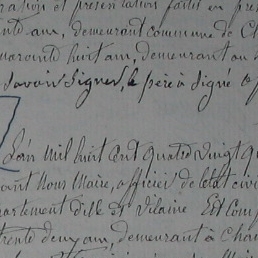 ration et présentation faite en pré
ente ans, demeurant commune de Ch
quarante huit ans, demeurant au
Savoir Signer, le père a Signé
L'an Mil huit Cent quatre Vingt q
vant Nous Maire, officier de l'état civi
partement d'ille et Vilaine Est comp
trente deux ans, demeurant à Cha